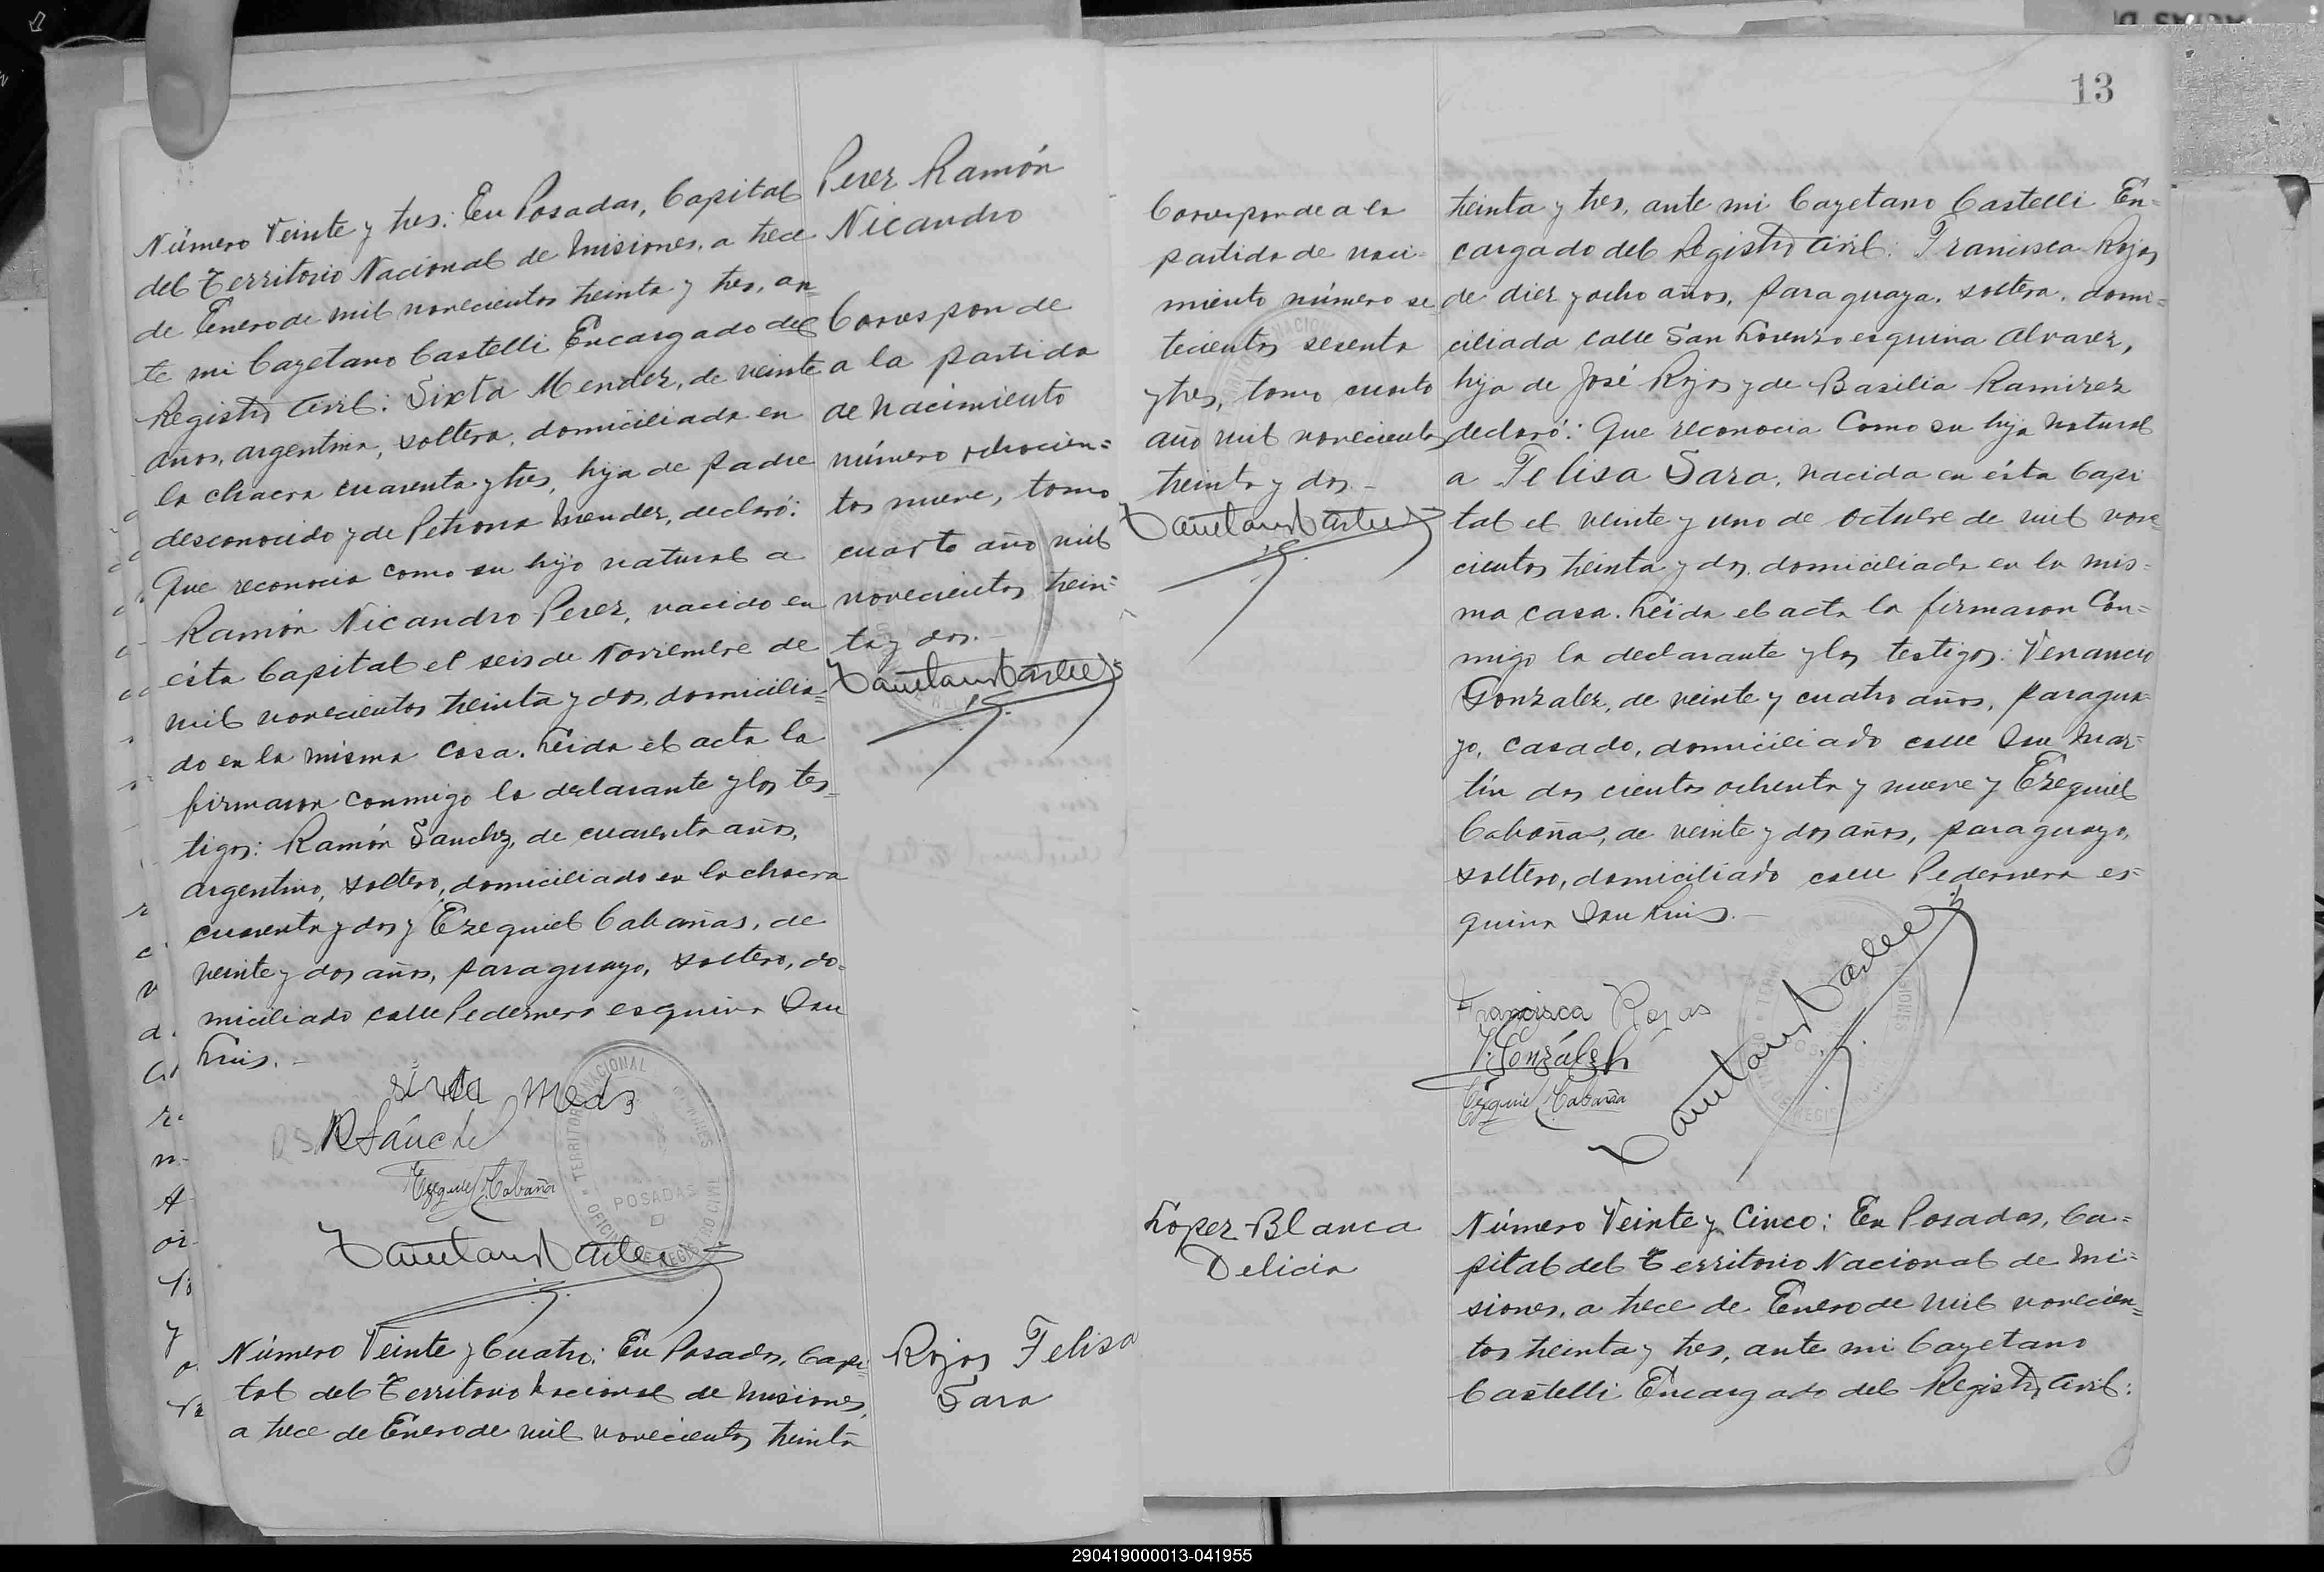 13
Perez Ramón
Nicandro
Número Veinte y tres: En Posadas, Capital
del Territorio Nacional de Misiones, a trece
de Enero de mil novecientos treinta y tres, an-
te mi Cayetano Castelli Encargado del
Registro Civil: Sixta Mendez, de veinte
años, argentina, soltera, domiciliada en
la chacra cuarenta y tres, hija de padre
desconocido y de Petrona Mendez, declaró:
Que reconocia como su hijo natural a
Ramón Nicandro Perez, nacido en
ésta Capital el seis de Noviembre de
mil novecientos treinta y dos, domicilia=
do en la misma casa. Leida el acta la
firmaron conmigo la declarante y los tes=
tigos: Ramón Sanchez, de cuarenta años,
argentino, soltero, domiciliado en la chacra
cuarenta y dos y Ezequiel Cabañas, de
veinte y dos años, paraguayo, soltero, do-
miciliado calle Pedernera esquina San
Luis. -
Corresponde
a la partida
de nacimiento
número ochocien=
tos nueve, tomo
cuarto año mil
novecientos trein=
ta y dos. -
R Sánche
Ezequiel Cabaña
TERRITORIO NACIONAL DE MISIONES
OFICINA DE REGISTRO CIVIL
POSADAS
Número Veinte y Cuatro: En Posadas, Capi-
tal del Territorio Nacional de Misiones,
a trece de Enero de mil novecientos treinta
Rojas Felisa
Sara
Corresponde a la
partida de naci-
miento número se
tecientos sesenta
y tres, tomo cuarto
año mil novecientos
treinta y dos -
treinta y tres, ante mi Cayetano Castelli En-
cargado del Registro Civil: Francisca Rojas
de diez y ocho años, paraguaya, soltera, domi=
ciliada calle San Lorenzo esquina Alvarez,
hija de José Rojas y de Basilia Ramirez
declaró: Que reconocia como su hija natural
a Felisa Sara, nacida en ésta Capi
tal el veinte y uno de Octubre de mil nove-
cientos treinta y dos, domiciliada en la mis=
ma casa. Leida el acta la firmaron Con=
migo la declarante y los testigos: Venancio
Gonzalez, de veinte y cuatro años, paragua-
yo, casado, domiciliado calle San Mar=
tín dos cientos ochenta y nueve y Ezequiel
Cabañas, de veinte y dos años, paraguayo,
soltero, domiciliado calle Pedernera es-
quina San Luis. -
Francisca Rojas
V. González
Ezequiel Cabaña
Lopez Blanca
Delicia
Número Veinte y Cinco: En Posadas, Ca=
pital del Territorio Nacional de Mi=
siones, a trece de Enero de mil novecien=
tos treinta y tres, ante mi Cayetano
Castelli Encargado del Registro Civil:
290419000013-041955